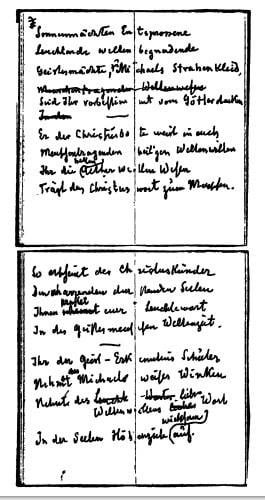 Sonnenmächten Entsprossene
Leuchtende Welten begnadende
Geistesmächte, Michaels Strahlenkleid,
Menschentragenden Weltenwesen
Seid Ihr vorbestimmt vom Götterdenken
Er der Christusbote weist in euch
Menschentragenden heiligen Weltenwillen
hellen
Ihr die Aether Welten Wesen
Trägt das Christuswort zum Menschen.
So erscheint des Christuskünder
Seelen
Ihnen euer Leuchtewort
In des Geistesmenschen Weltenzeit.
Ihr der Geist-Erkenntnis Schüler
Nehmet Michaels weises Winken
Nehmt des Liebe- Wort
Welten willens
wirksam
In der Seelen Höhenziele auf.